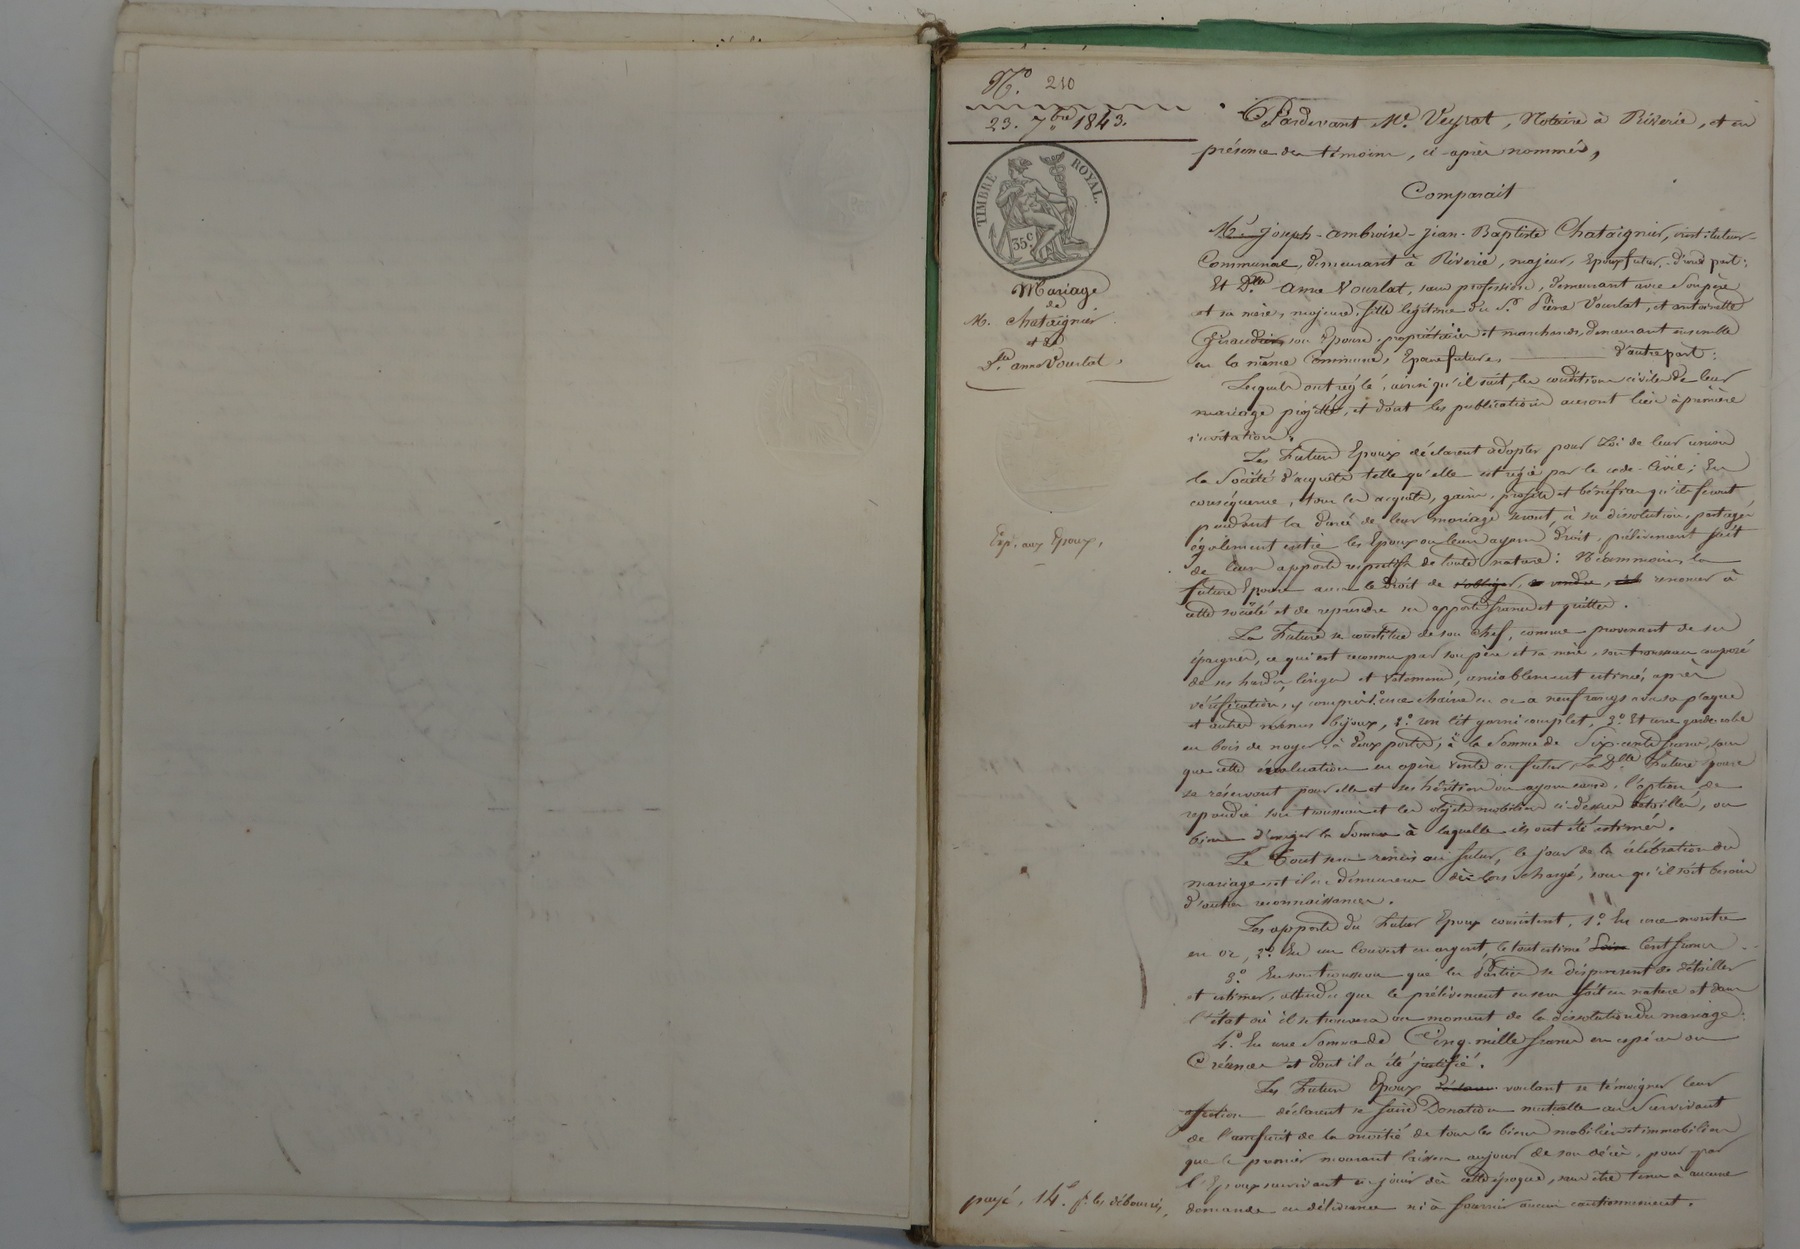 N.° 210
23. 7.bre 1843.
TIMBRE ROYAL.
35 c
Mariage
de
M. Chataignier
et de
D.lle anne Vourlat,
Exp. aux Epoux,
payé, 14.f p. les déboursés,
Pardevant M.e Veyrat, Notaire à Riverie, et en
présence des témoins, ci-après nommés,
Comparait
M.r Joseph-ambroise-Jean-Baptiste Chataignier, instituteur
Communal, demeurant à Riverie, majeur, Epoux futur, d'une part:
Et D.lle Anne Vourlat, sans profession, demeurant avec son père
et sa mère, majeure, fille légitime du S.r Pierre Vourlat, et antoinette
son Epouse, propriétaires et marchands, demeurant ensemble
en la même Commune, Epouse future, d'autre part:
Lesquels ont réglé, ainsi qu'il suit, les conditions civiles de leur
mariage projetté, et dont les publications auront lieu à première
invitation.
Les Futurs Epoux déclarent adopter pour Loi de leur union
la Société d'acquêts telle qu'elle est régie par le code-Civil; En
conséquence, tous les acquêts, gains, profits et bénéfices qu'ils feront
pendant la durée de leur mariage seront, à sa dissolution, partagés
également entre les Epoux ou leurs ayans droit, prélèvement fait
de leurs apports respectifs de toute nature: Néanmoins, la
future Epouse aura le Droit de renoncer à
cette société et de reprendre ses apports francs et quittes.
La Future se constitue de son Chef, comme provenant de ses
épargnes, ce qui est reconnu par son père et sa mère, son trousseau composé
de ses hardes, linges et vêtemens, amiablement estimés, après
vérification, y compris 1.° une chaîne en or à neuf rangs avec sa plaque
et autres menus bijoux, 2.° un lit garni complet, 3.° Et une garde-robe
en bois de noyer, à deux portes, à la Somme de Six-cents francs, sans
que cette évaluation en opère vente au futur, La D.lle Future épouse
se réservant pour elle et ses héritiers ou ayans cause, l'option de
reprendre son trousseau et les objets mobiliers ci-dessus détaillés, ou
bien d'exiger la Somme à laquelle ils ont été estimés.
Le Tout sera remis au futur, le jour de la célébration du
mariage et il en demeurera dès-lors chargé, sans qu'il soit besoin
d'autres reconnaissances.
Les apports du Futur Epoux consistent, 1.° En une montre
en or, 2.° En un Couvert en argent, le tout estimé Cent francs
3.° En son trousseau que les Parties se dispensent de détailler
et estimer, attendu que le prélèvement en sera fait en nature et dans
l'état où il se trouvera au moment de la dissolution du mariage:
4.° En une Somme de Cinq-mille francs en espèces ou
Créances et dont il a été justifié.
Les Futurs Epoux voulant se témoigner leur
affection déclarent se faire Donation mutuelle au Survivant
de l'usufruit de la moitié de tous les biens mobiliers et immobiliers
que le premier mourant laissera au jour de son décès, pour par
l'Epoux survivant en jouir dès cette époque, sans être tenu à aucune
demande en délivrance ni à fournir aucun cautionnement.